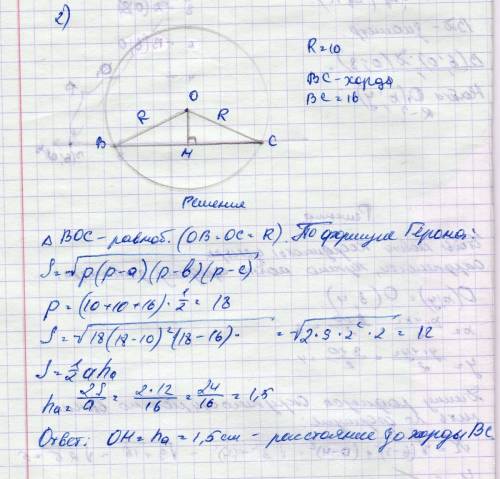 2)
R=10
BC - хорда
BC = 16
O
R
R
B
H
C
Решение
△ BOC - равноб. (OB=OC=R). По формуле Герона:
S=√p(p-a)(p-b)(p-c)
p = (10+10+16)·1/2 = 18
S=√18(18-10)²(18-16) = √2·9·2²·2 = 12
S=1/2 ah_a
h_a = 2S/a = 2·12/16 = 24/16 = 1,5
Ответ: OH = h_a = 1,5 см - расстояние до хорды BC